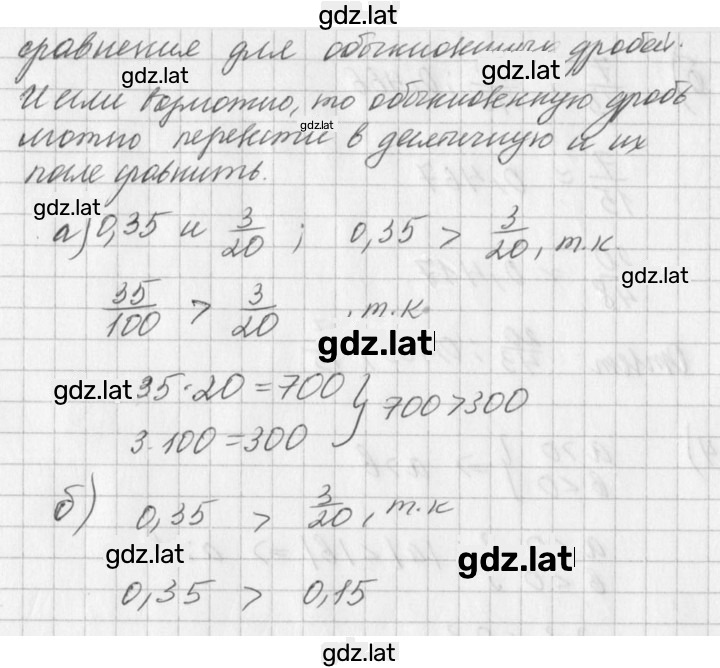 gdz.lat
сравнение для обыкновенных дробей.
gdz.lat gdz.lat
И если возможно, то обыкновенную дробь
gdz.lat
можно перевести в десятичную и их
после сравнить.
gdz.lat
а) 0,35 и 3/20 ; 0,35 > 3/20, т.к.
gdz.lat
35/100 > 3/20 , т.к.
gdz.lat
gdz.lat
35·20=700
3·100=300 } 700>300
б) 0,35 > 3/20, т.к
gdz.lat gdz.lat
0,35 > 0,15
gdz.lat